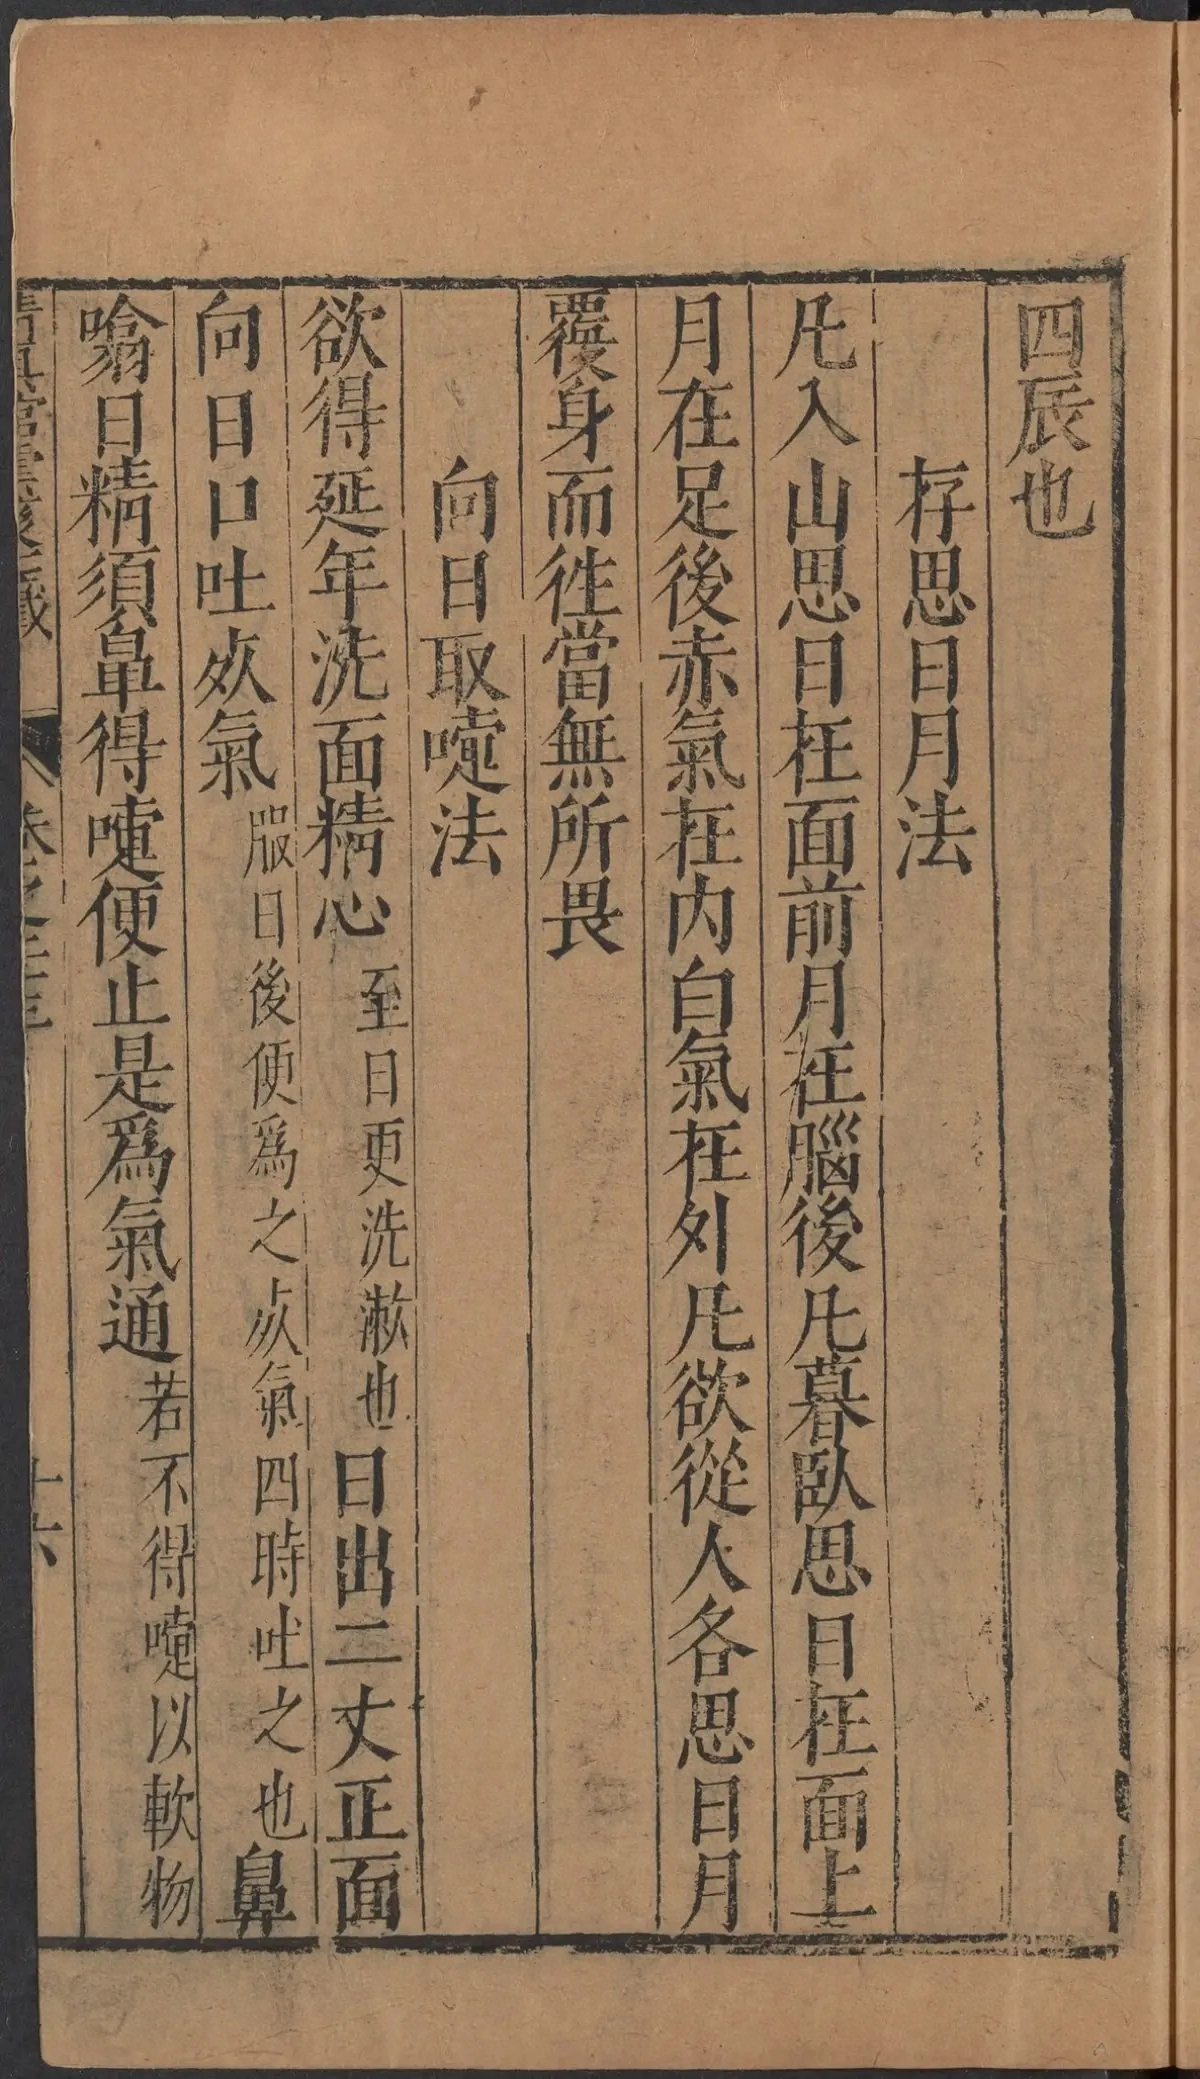 四辰也
存思日月法
凡入山思日在面前月在腦後凡暮臥思日在面上
月在足後赤氣在內白氣在外凡欲從人各思日月
覆身而徃當無所畏
向日取嚏法
欲得延年洗面精心至日更洗漱也日出二丈正面
向日口吐死氣服日後便爲之死氣四時吐之也鼻
噏日精須鼻得嚏便止是爲氣通若不得嚏以軟物
卷之二十三
十六